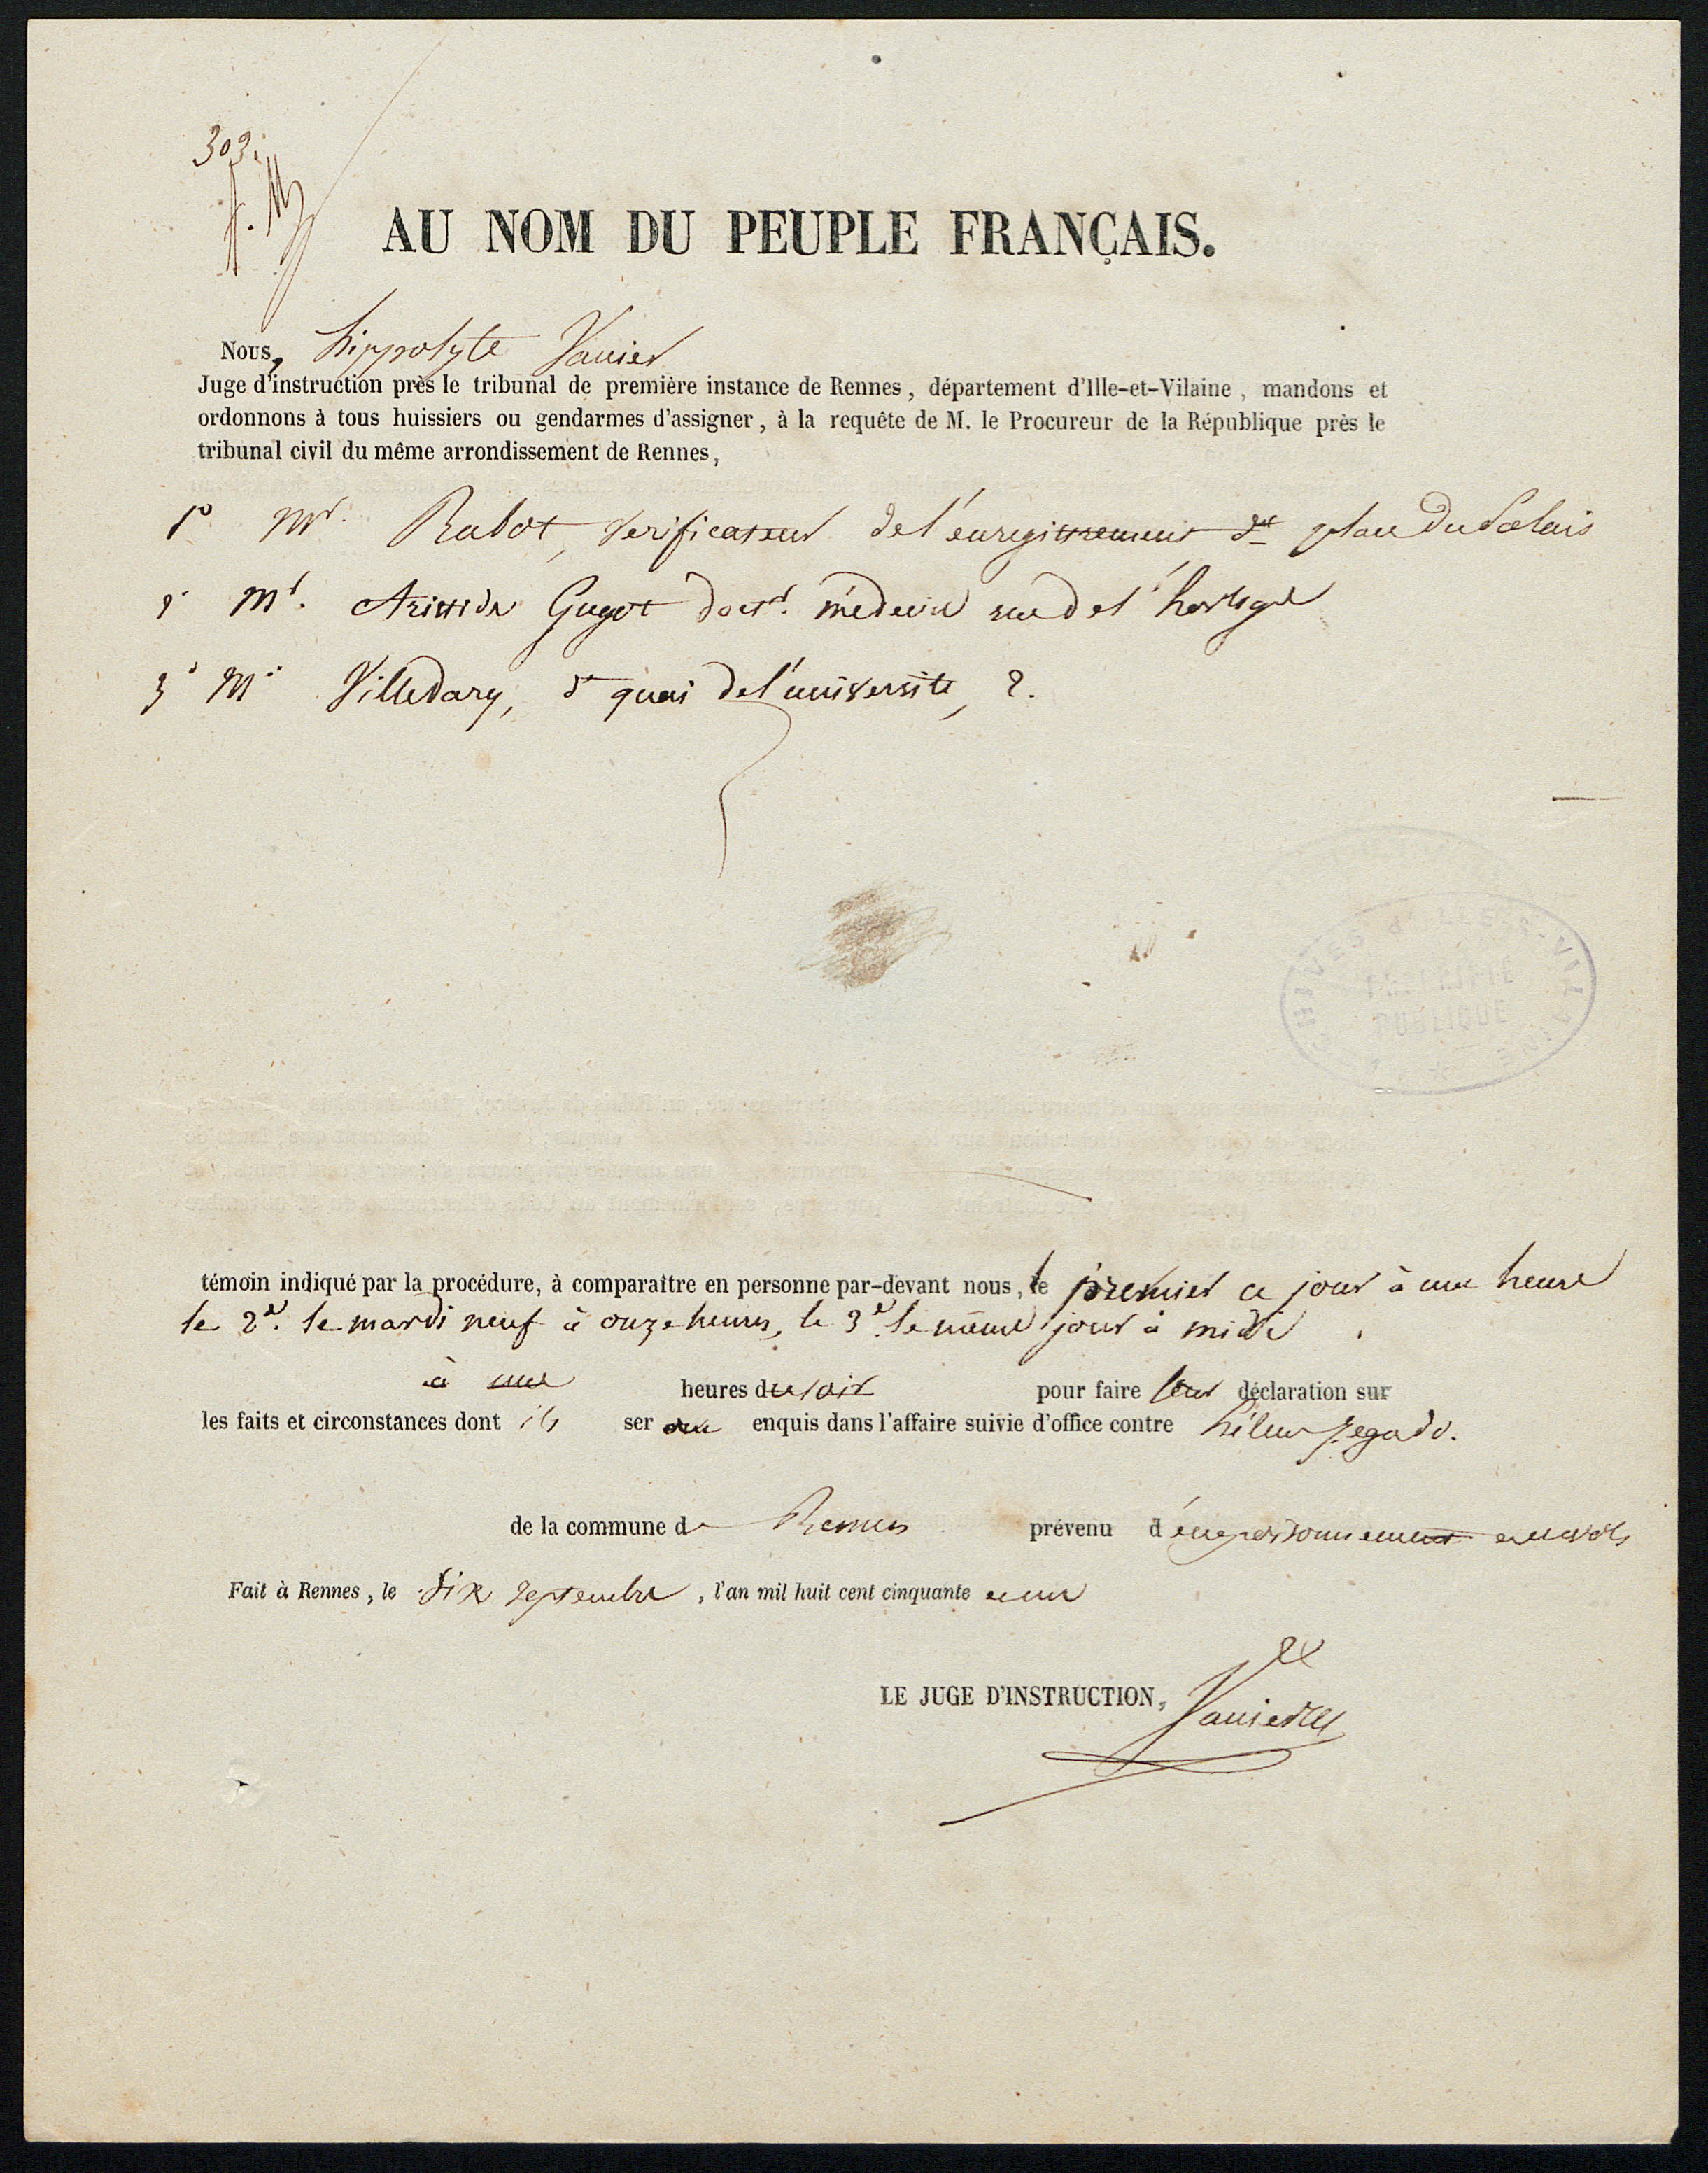 303.
AU NOM DU PEUPLE FRANÇAIS.
Nous, hippolyte Vanier
Juge d'instruction près le tribunal de première instance de Rennes, département d'Ille-et-Vilaine, mandons et
ordonnons à tous huissiers ou gendarmes d'assigner, à la requête de M. le Procureur de la République près le
tribunal civil du même arrondissement de Rennes,
1° Mr. Rabot, verificateur de l'enregistrement dt place du Palais
2° Mr. Aristide Guyot doctr. médecin rue de l'horloge
3° Mr Villedary, dt quai de l'université, 2.
ARCHIVES d'ILLE-&-VILAINE
PROPRIÉTÉ
PUBLIQUE
témoin indiqué par la procédure, à comparaître en personne par-devant nous, le premier ce jour à une heure
le 2e. le mardi neuf à onze heures, le 3e. le même jour à midi
à une heures du soir pour faire leur déclaration sur
les faits et circonstances dont ils seront enquis dans l'affaire suivie d'office contre hélène jegado.
de la commune de Rennes prévenu d'empoisonnement et vols
Fait à Rennes, le six septembre, l'an mil huit cent cinquante et un
LE JUGE D'INSTRUCTION,
Vanier